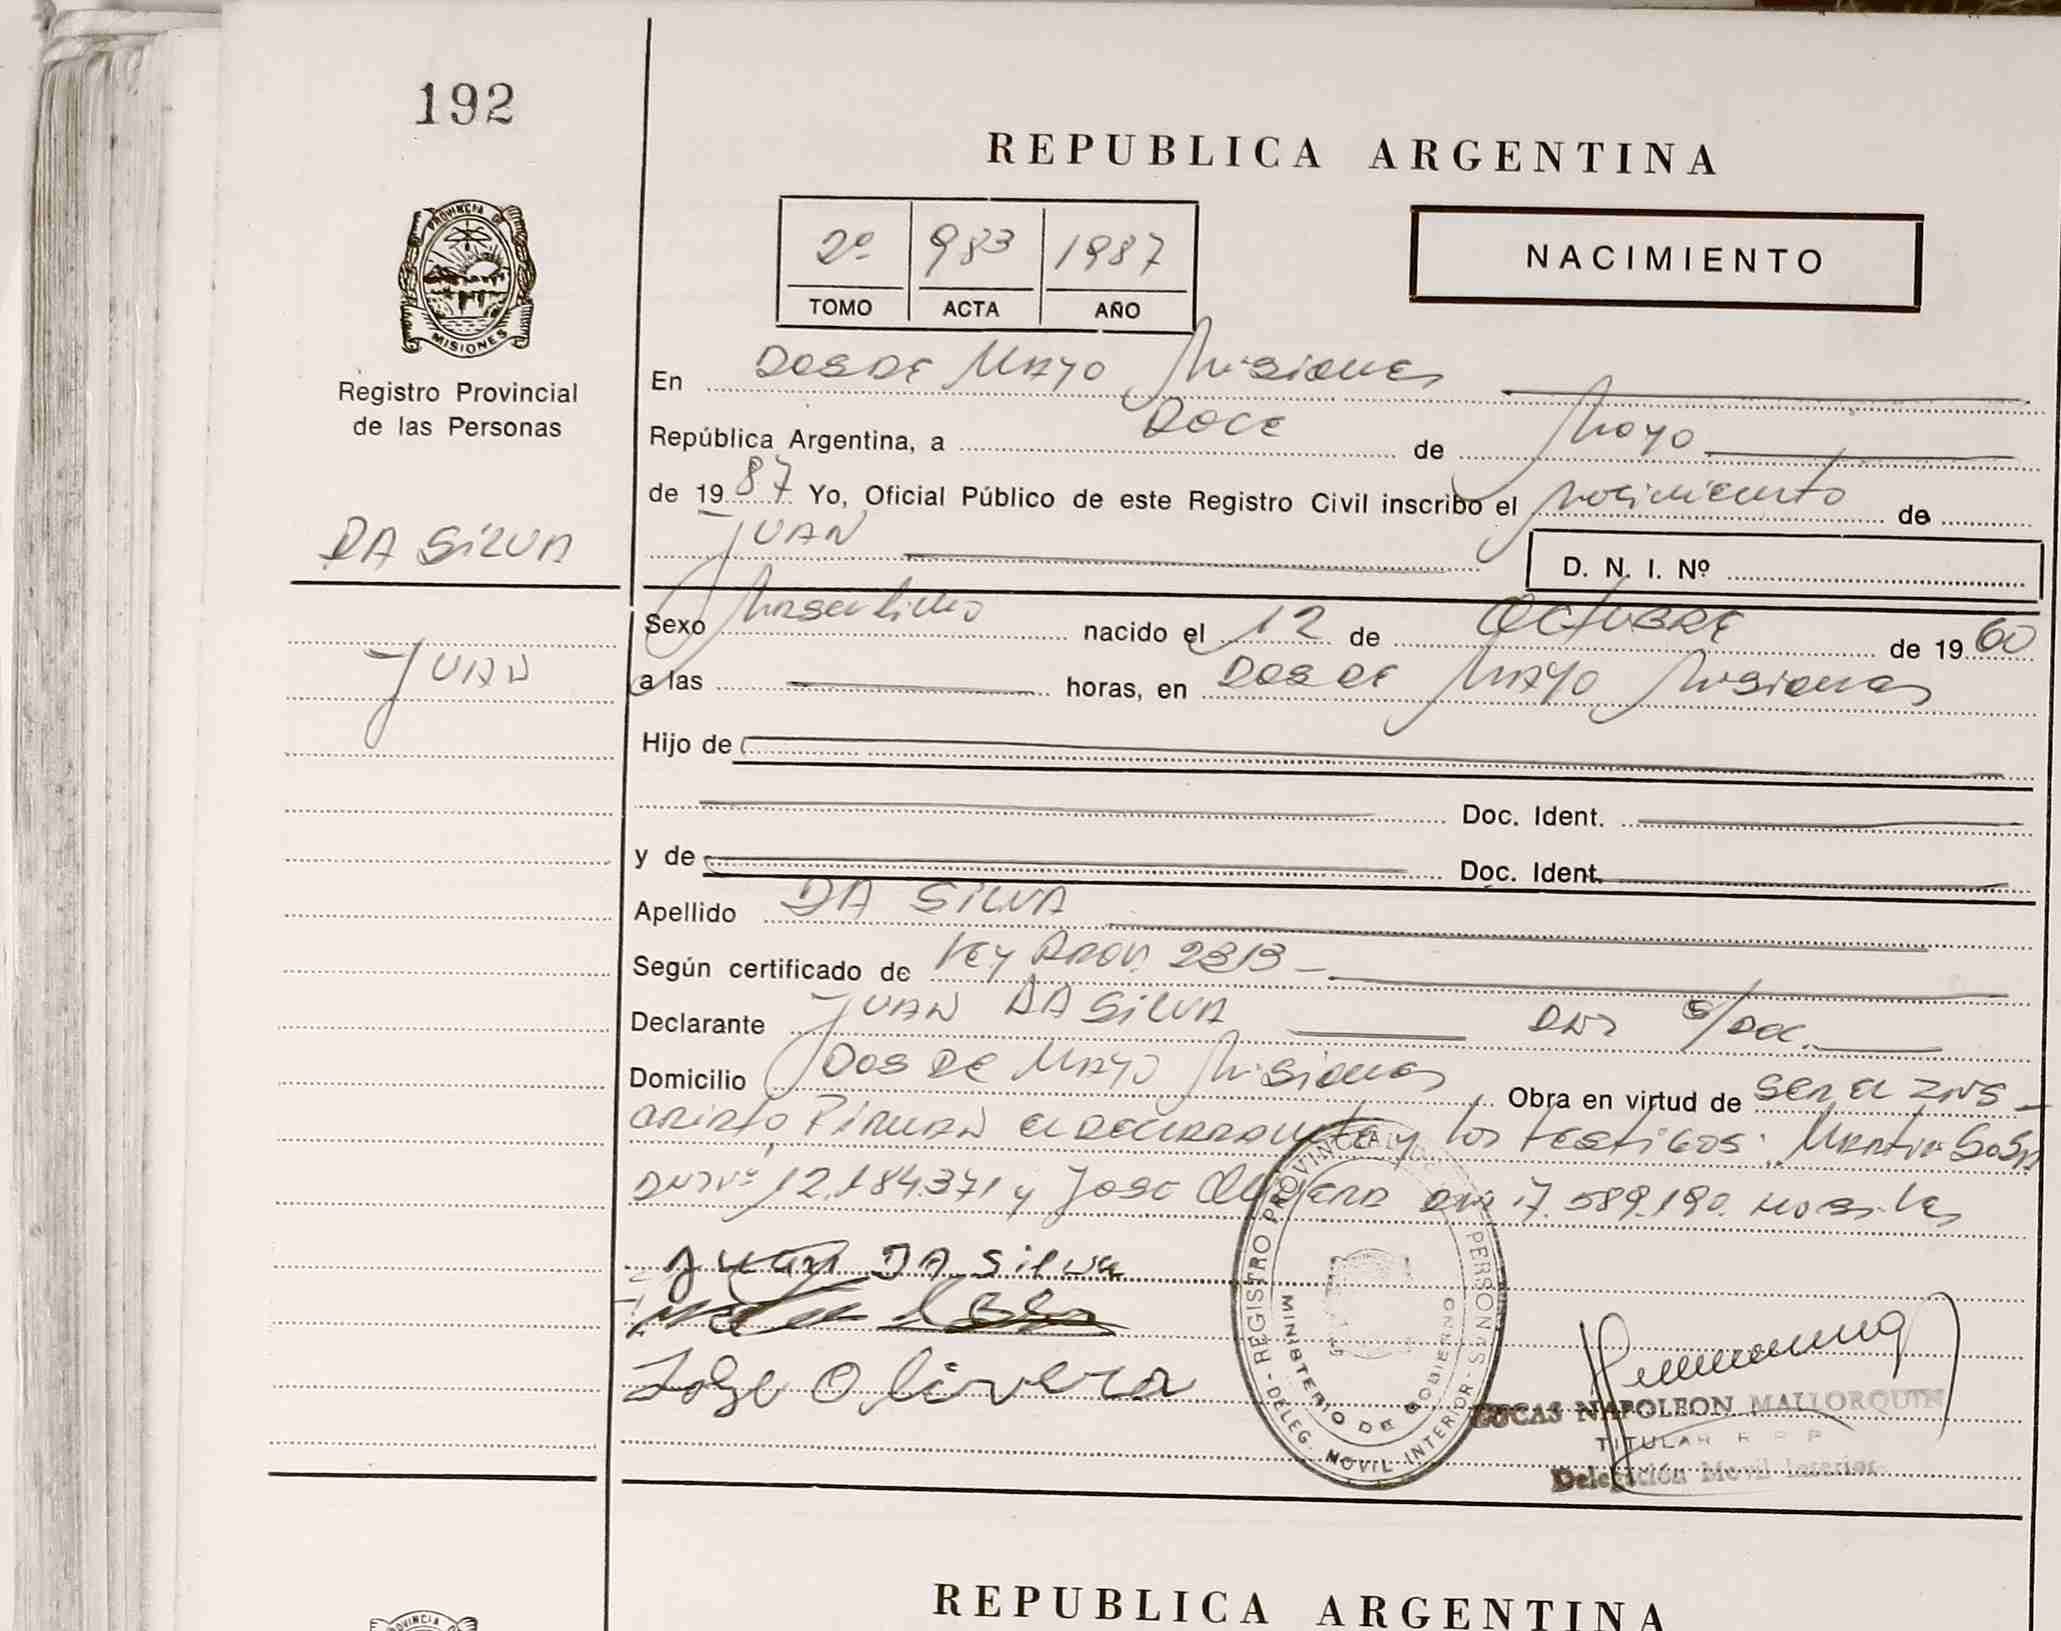 192
REPUBLICA ARGENTINA
2º 983 1987
TOMO ACTA AÑO
NACIMIENTO
PROVINCIA DE
MISIONES
Registro Provincial
de las Personas
En DOS DE MAYO Misiones
República Argentina, a DOCE de Mayo
de 1987 Yo, Oficial Público de este Registro Civil inscribo el nacimiento de
DA SILVA
JUAN
D. N. I. Nº
JUAN
Sexo Masculino nacido el 12 de OCTUBRE de 1960
a las horas, en DOS DE MAYO Misiones
Hijo de
Doc. Ident.
y de Doc. Ident.
Apellido DA SILVA
Según certificado de Ley PROV. 2313 -
Declarante JUAN DA SILVA DNI S/DOC.
Domicilio DOS DE MAYO Misiones Obra en virtud de SER EL INS-
CRIPTO, FIRMAN EL DECLARANTE y los testigos: MARTIN SOSA
DNI Nº 12.184.371 y JOSE OLIVERA DNI 17.589.190. HABILES
Juan DA Silva
Jose Olivera
REGISTRO PROVINCIAL DE LAS PERSONAS - DELEG. MOVIL INTERIOR -
MINISTERIO DE GOBIERNO
LUCAS NAPOLEON MALLORQUIN
TITULAR R P P
Delegación Movil Interior
REPUBLICA ARGENTINA
PROVINCIA